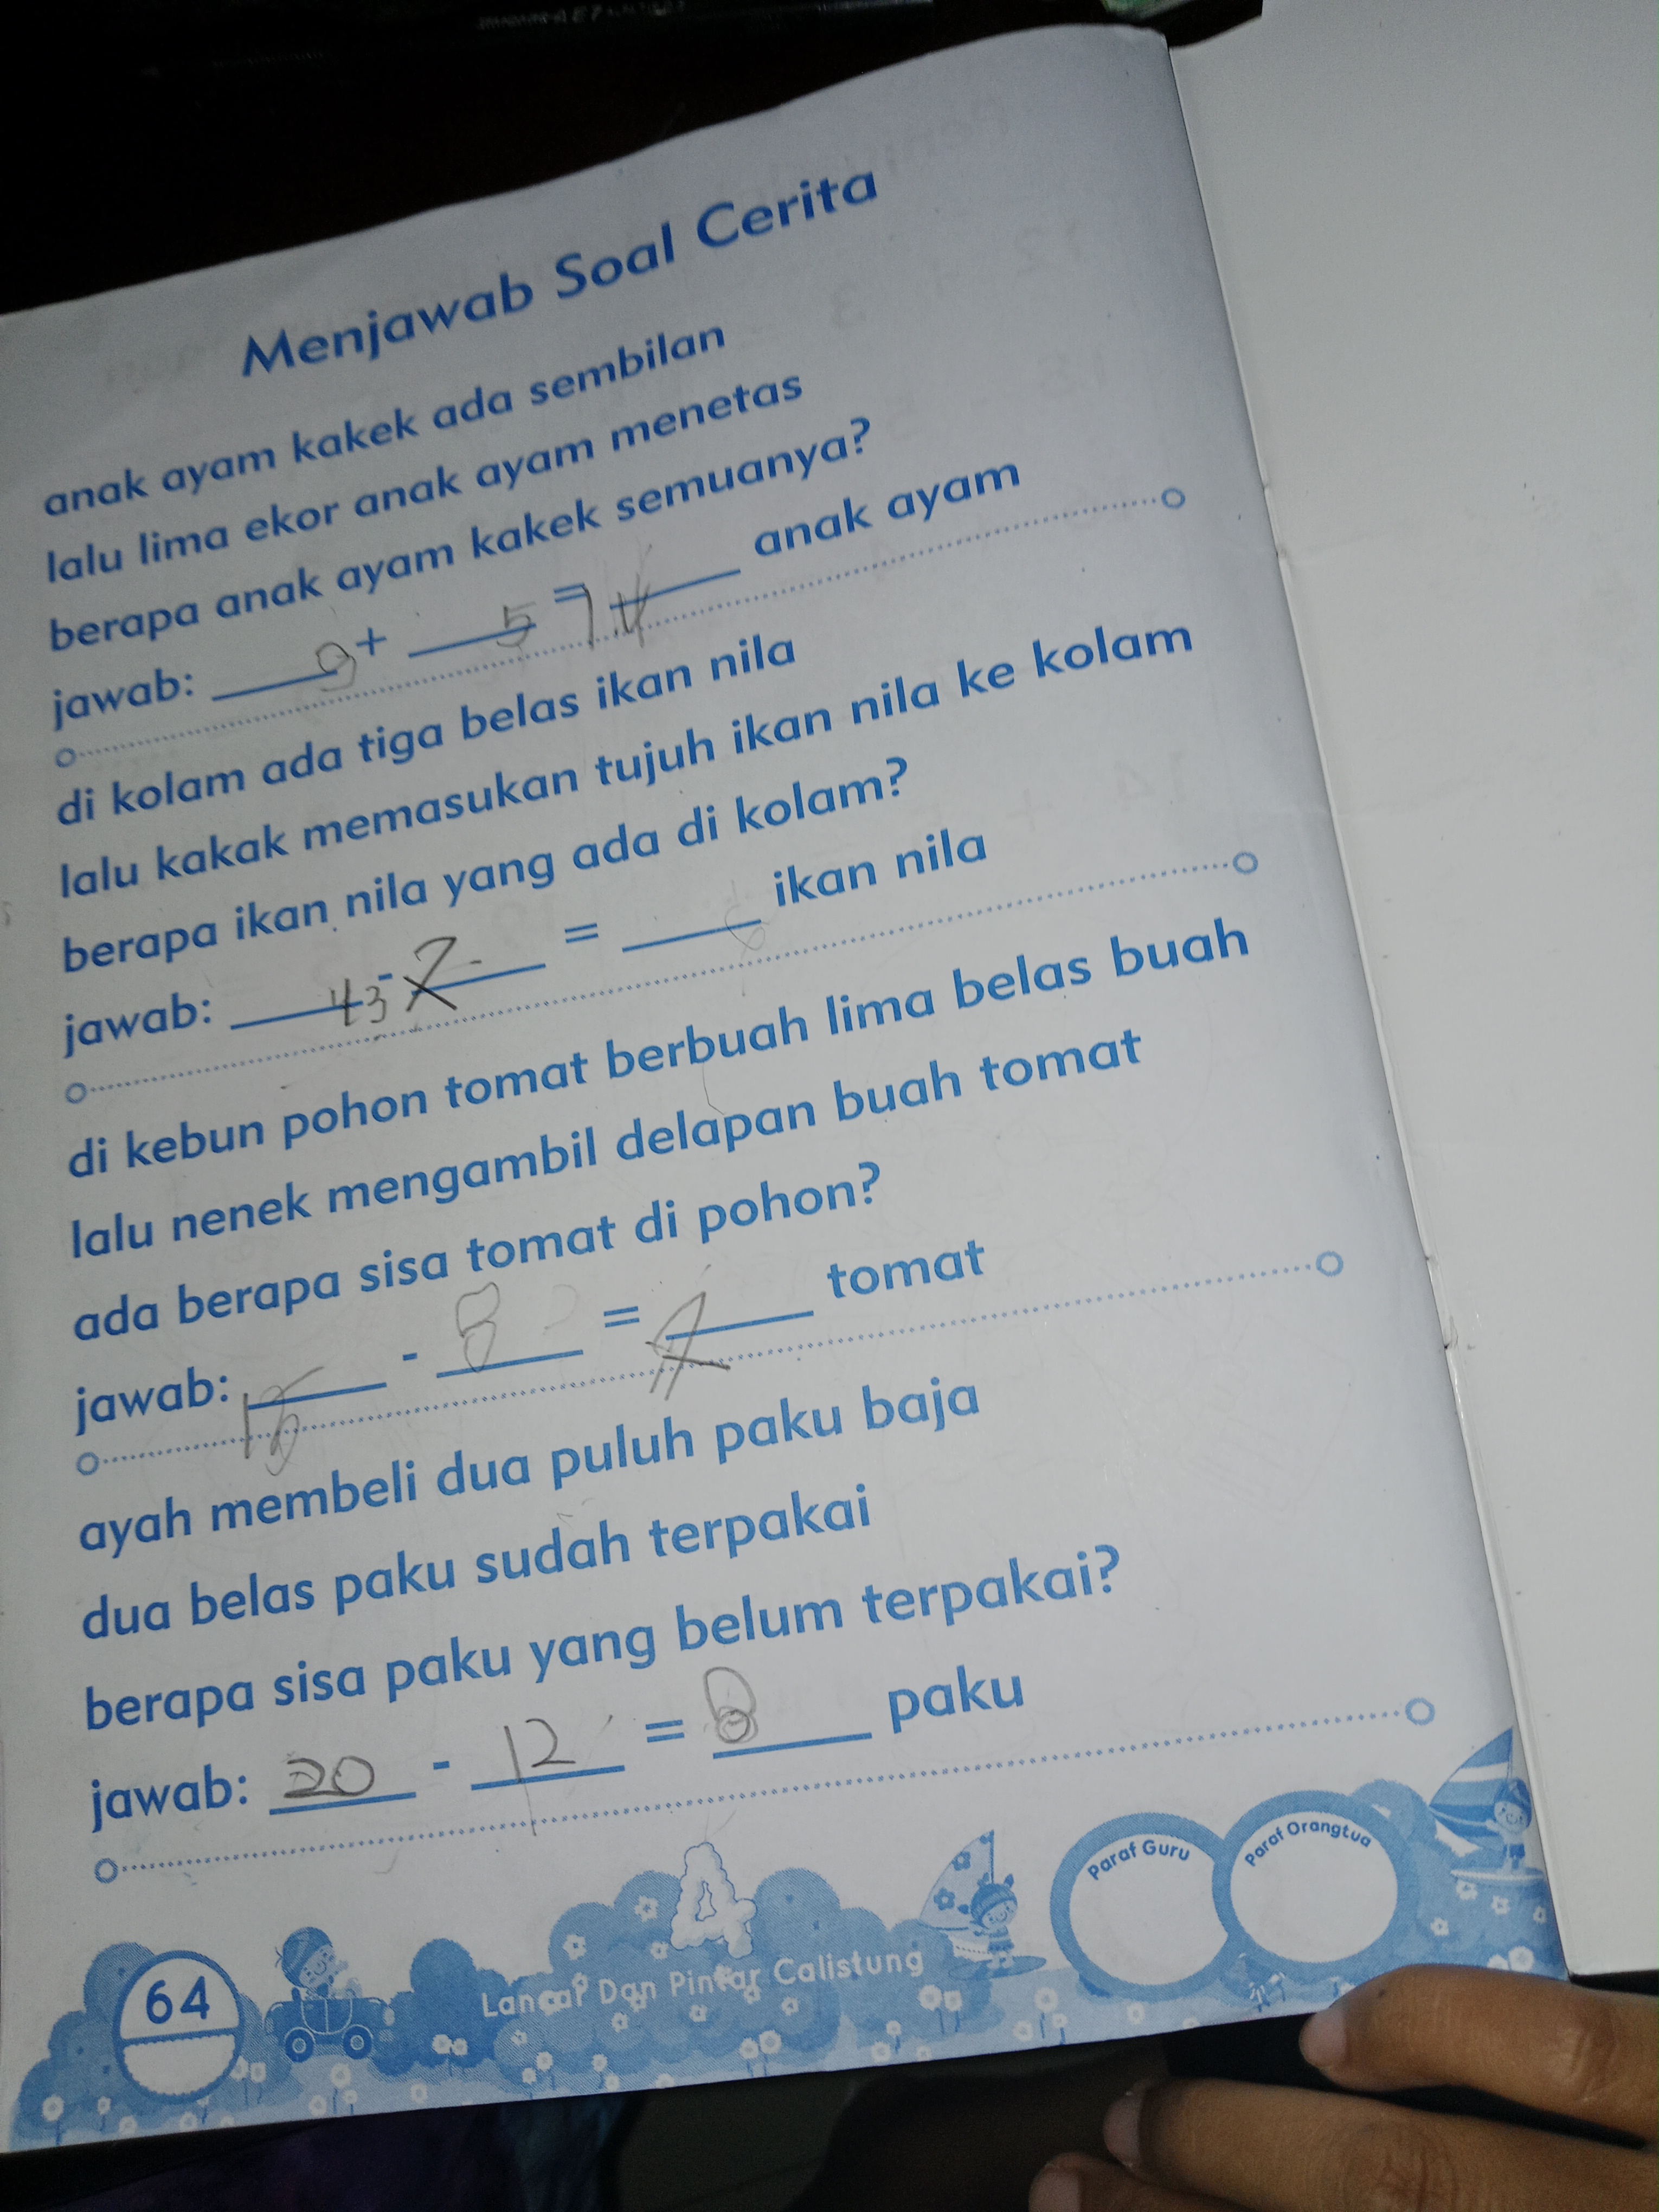 Menjawab Soal Cerita
anak ayam kakek ada sembilan
lalu lima ekor anak ayam menetas
berapa anak ayam kakek semuanya?
jawab: 9 + 5 = 14 anak ayam
di kolam ada tiga belas ikan nila
lalu kakak memasukan tujuh ikan nila ke kolam
berapa ikan nila yang ada di kolam?
jawab: 13 - 7 = ikan nila
di kebun pohon tomat berbuah lima belas buah
lalu nenek mengambil delapan buah tomat
ada berapa sisa tomat di pohon?
jawab: 15 - 8 = 7 tomat
ayah membeli dua puluh paku baja
dua belas paku sudah terpakai
berapa sisa paku yang belum terpakai?
jawab: 20 - 12 = 8 paku
Paraf Guru
Paraf Orangtua
A
Lancar Dan Pintar Calistung
64